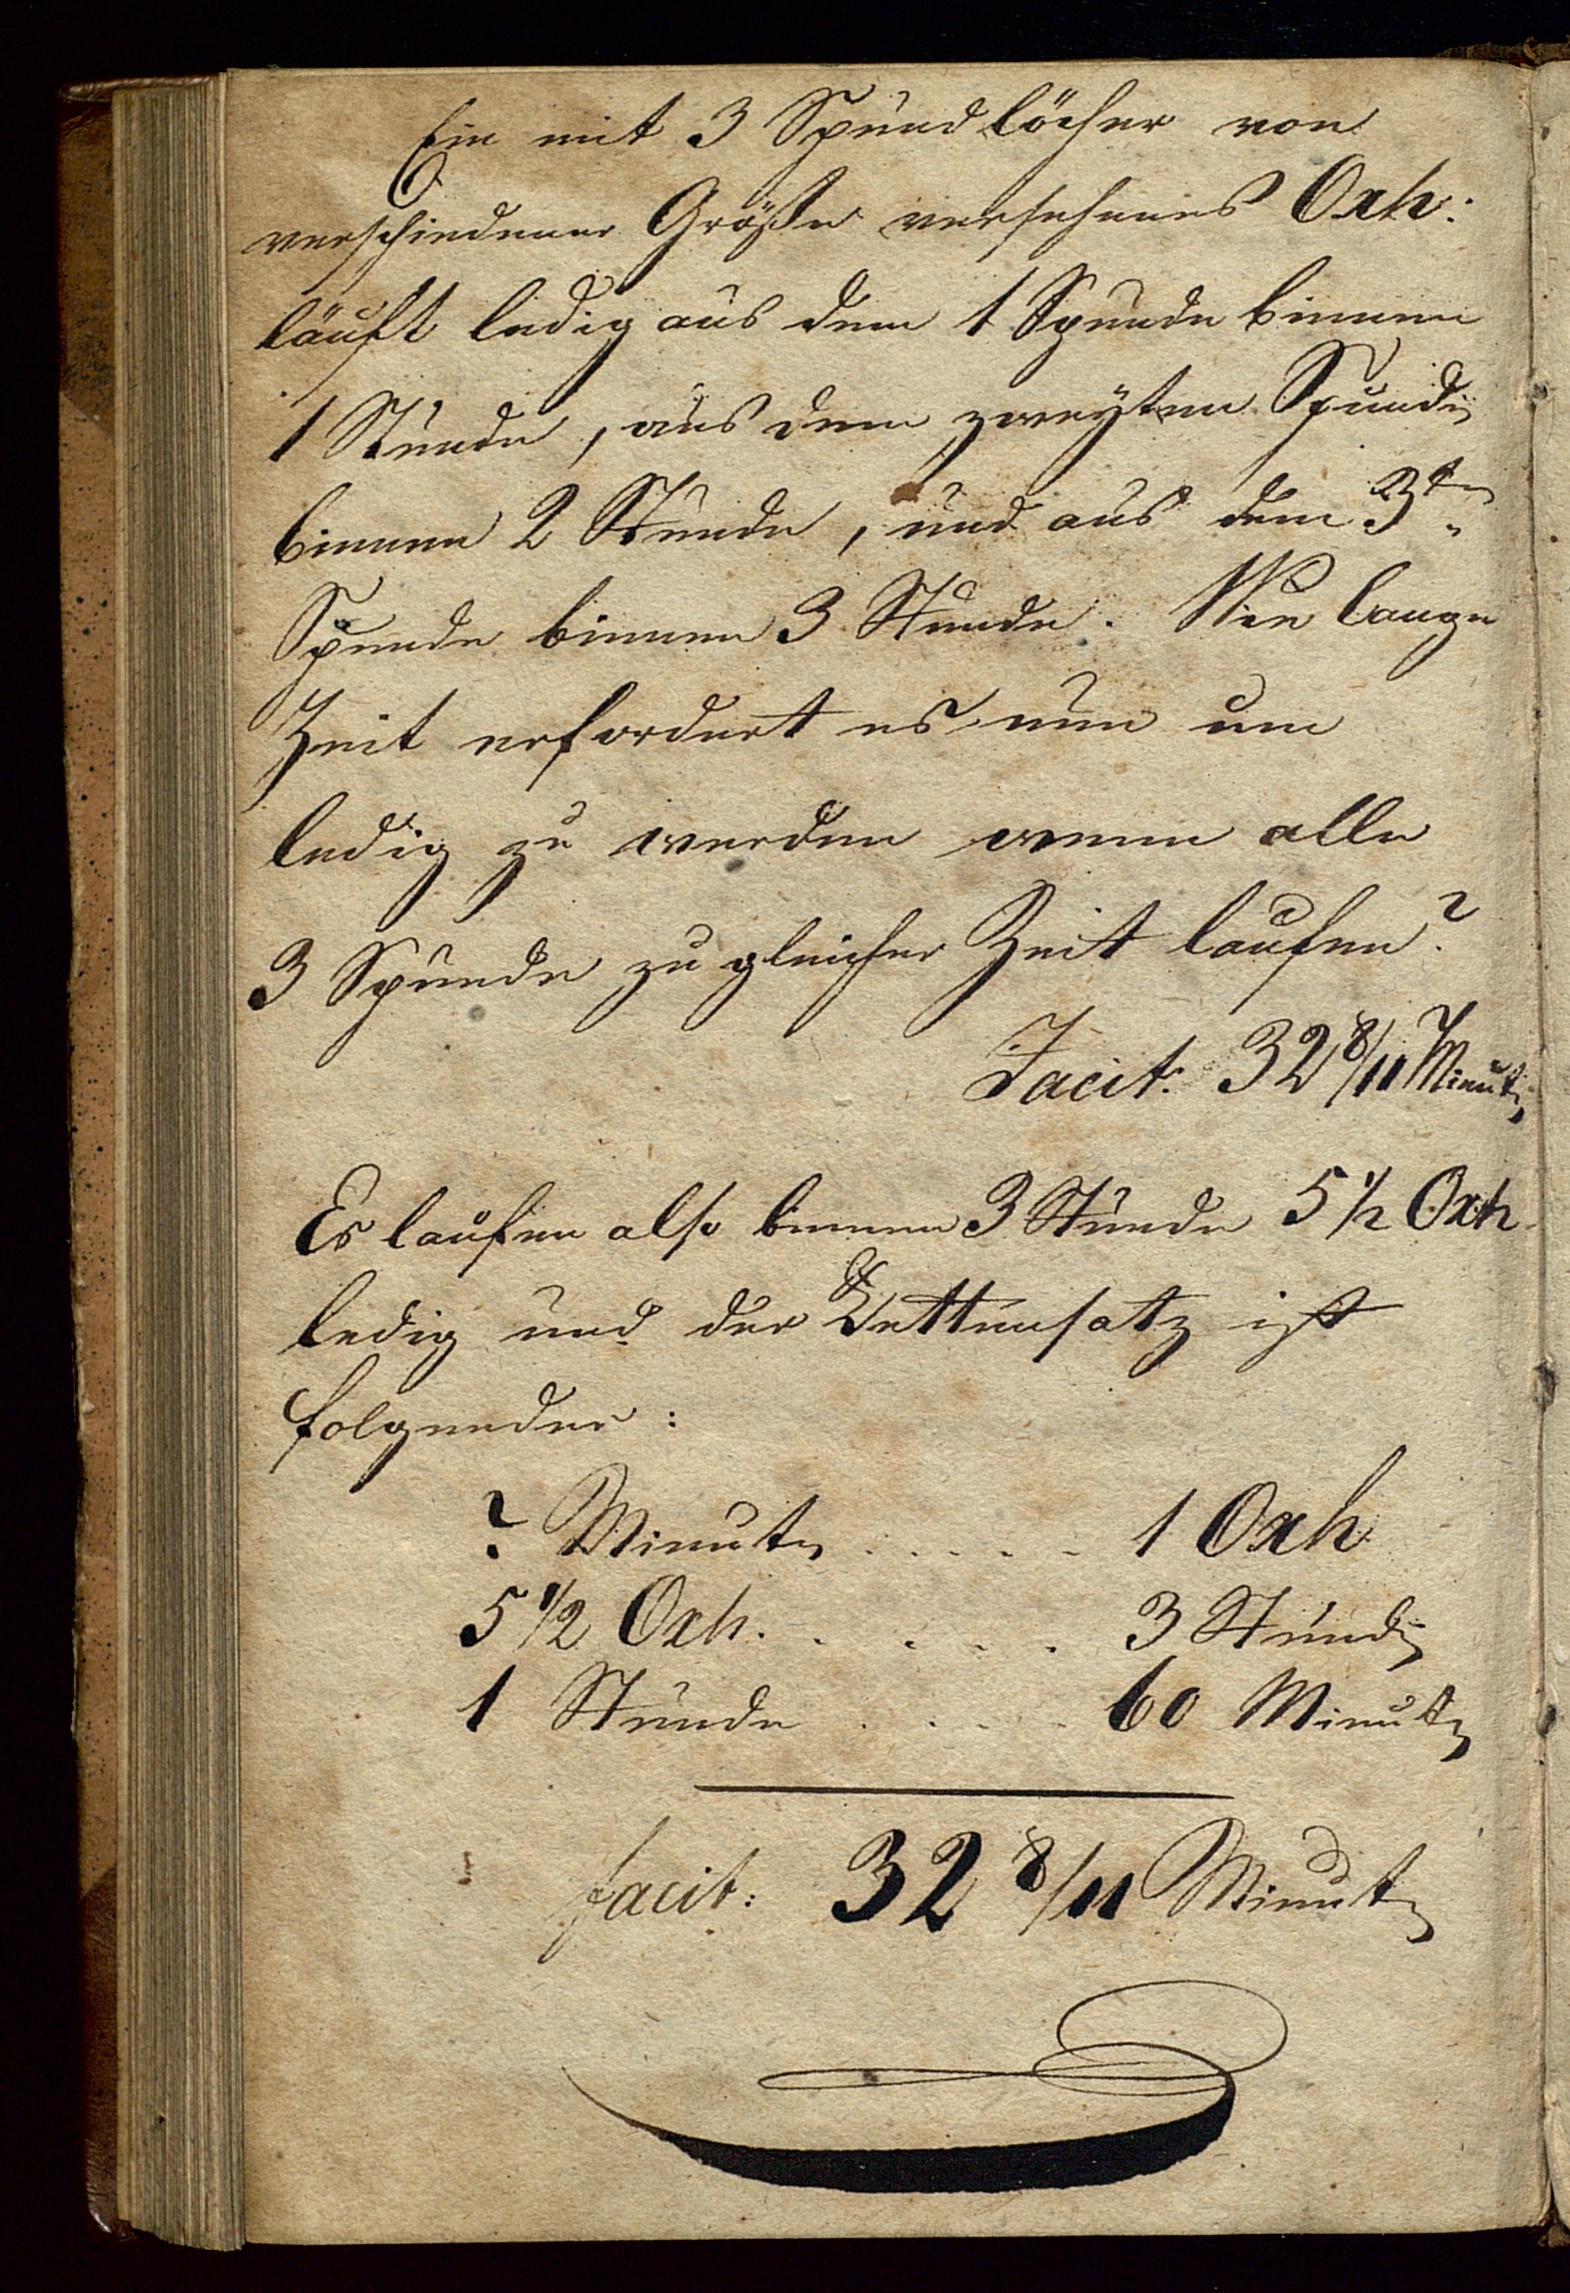 Ein mit 3 Spundlöcher von
verschiedener Größe versehenes Oxh:
läuft ledig aus dem 1 Spunde binnen
1 Stunde, aus dem zweyten Spunde
binnen 2 Stunde, und aus dem 3ten
Spunde binnen 3 Stunde. Wie lange
Zeit erfordert es nun um
ledig zu werden wenn alle
3 Spunde zu gleicher Zeit laufen?
Facit: 32 8/11 Minuten
Es laufen also binnen 3 Stunde 5 1/2 Oxh
ledig und der Kettensatz ist
folgender:
? Minuten ..... 1 Oxh
5 1/2 Oxh ..... 3 Stunden
1 Stunde ..... 60 Minuten
facit: 32 8/11 Minuten